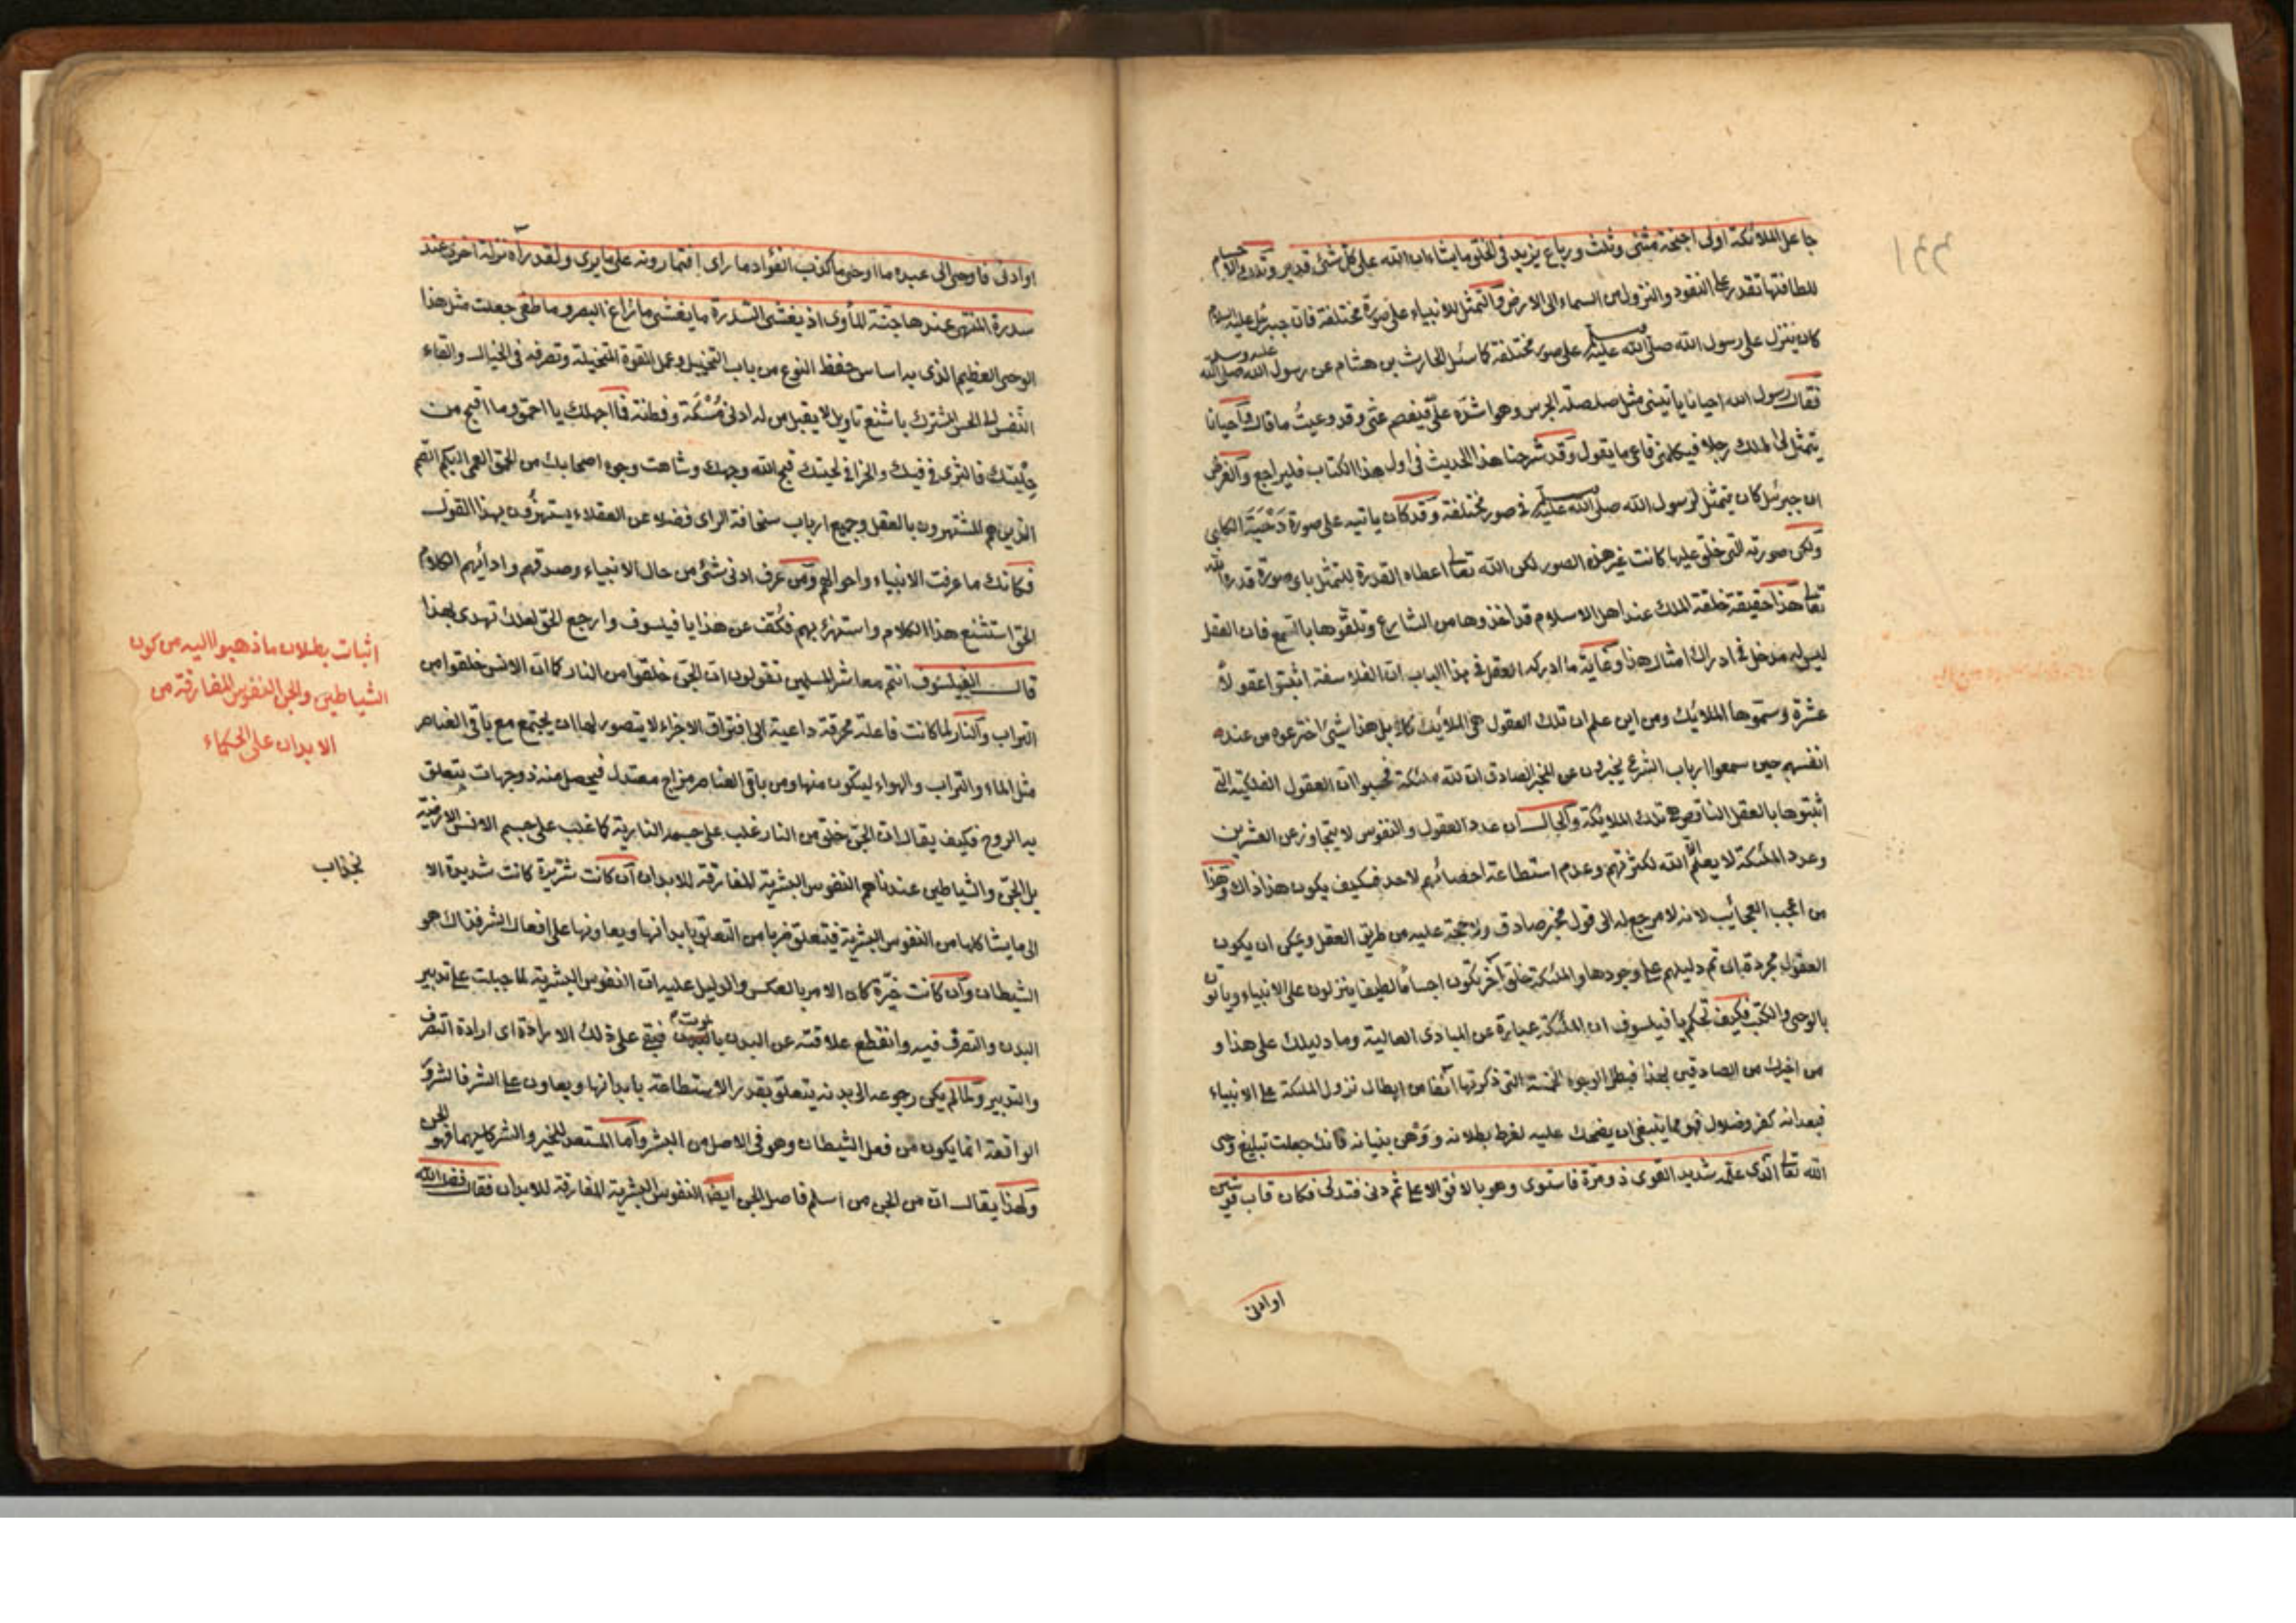 جاعل الملائكة اولى اجنحة مثنى وثلث ورباع يزيد فى الخلق ما يشاء ان الله على كل شئ قدير وتلك الاجسام
للطافتها تقدر على النفود والنزول من السماء الى الارض والتمثل للانبياء على صورة مختلفة فان جبرئيل عليه السلام
كان ينزل على رسول الله صلى الله عليه وسلم على صور مختلفة كما سئل الحارث بن هشام عن رسول الله صلى الله عليه وسلم
فقال رسول الله احيانا ياتينى مثل صلصلة الجرس وهو اشده على فيفصم عنى وقد وعيت ما قال واحيانا
يتمثل لى الملك رجلا فيكلمنى فاعى ما يقول وقد شرحنا هذا الحديث فى اول هذا الكتاب فليراجع والغرض
ان جبرئيل كان يتمثل لرسول الله صلى الله عليه وسلم فى صور مختلفة وقد كان ياتيه على صورة دحية الكلبى
ولكن صورته التى خلق عليها كانت غير هذه الصور لكن الله تعالى اعطاه القدرة للتمثل باى صورة قدره الله
تعالى هذا حقيقة خلقة الملك عند اهل الاسلام قد اخذوها من الشارع وتلقوها بالسمع فان العقل
ليس له مدخل فى ادراك امثال هذا وغاية ما ادركه العقل فى هذا الباب ان الفلاسفة اثبتوا عقولا
عشرة وسموها الملائك ومن اين علم ان تلك العقول هى الملايك كلا بل هذا شيئ اخترعوه من عند
انفسهم حين سمعوا ارباب الشرع يخبرون عن المخبر الصادق ان لله ملئكة فحسبوا ان العقول الفلكية التى
اثبتوها بالعقل الناقص هى تلك الملائكة والحال ان عدد العقول والنفوس لا يتجاوز عن العشرين
وعدد الملئكة لا يعلم الا الله لكثرتهم وعدم استطاعة احصائهم لاحد فكيف يكون هذا ذاك وهذا
من اعجب العجائب لانه لا مرجع له الى قول مخبر صادق ولا حجة عليه من طريق العقل ويمكن ان يكون
العقول مجردة ان تم دليلهم على وجودها والملئكة خلق آخر يكون اجساما لطيفا ينزلون على الانبياء وياتون
بالوحى والكتب فكيف تحكم يا فيلسوف ان الملئكة عبارة عن المبادى العالية وما دليلك على هذا و
من اخبرك من الصادقين بهذا فبطل الوجوه الخمسة التى ذكرتها آنفا من ابطال نزول الملئكة على الانبياء
فبعد انه كفر وضلال فهو مما ينبغى ان يضحك عليه لفرط بطلانه ووهن بنيانه فانك جعلت تبليغ وحى
الله تعالى الذى علمه شديد القوى ذو مرة فاستوى وهو بالافق الاعلى ثم دنى فتدلى فكان قاب قوسين
او ادنى
او ادنى فاوحى الى عبده ما اوحى ما كذب الفؤاد ما راى افتمارونه على ما يرى ولقد رآه نزلة اخرى عند
سدرة المنتهى عندها جنة المأوى اذ يغشى السدرة ما يغشى ما زاغ البصر وما طغى جعلت مثل هذا
الوحى العظيم الذى به اساس حفظ النوع من باب التخييل وعمل القوة المتخيلة وتصرفه فى الخيال والقاء
النفس الى الحس المشترك باشنع تاويل لا يقبل من له ادنى مسكة وفطنة فما اجهلك يا احمق وما اقبح من
حليتك فالثرى فى فيك والخزا فى لحيتك قبح الله وجهك وشاهت وجوه اصحابك من الحمق العمى البكم الصم
الذين هم المشتهرون بالعقل وجميع ارباب سخافة الراى فضلا عن العقلاء يستهزؤن بهذا القول
فكانك ما عرفت الانبياء واحوالهم ومن عرف ادنى شئ من حال الانبياء وصدقهم وادائهم الكلام
الحق استشنع هذا الكلام واستهزئ بهم فكف عن هذا يا فيلسوف وارجع الحق لعلك تهدى بهذا
قال الفيلسوف انتم معاشر المسلمين تقولون ان الجن خلقوا من النار كما ان الانس خلقوا من
التراب والنار لما كانت فاعلة محرقة داعية الى افتراق الاجزاء لا يتصور لها ان يجتمع مع باقى العناصر
مثل الماء والتراب والهواء ليتكون منها ومن باقى العناصر مزاج معتدل فيحصل منه ذو جهات يتعلق
به الروح فكيف يقال ان الجن خلق من النار غلب على جسمه النارية كما غلب على جسم الانس الارضية
بل الجن والشياطين عندنا هم النفوس البشرية المفارقة للابدان ان كانت شريرة كانت شديدة الا
نجذاب
الى ما يشاكلها من النفوس البشرية فيتعلق ضربا من التعلق بابدانها ويعاونها على افعال الشر فذاك هو
الشيطان وان كانت خيرة كان الامر بالعكس والدليل عليه ان النفوس البشرية لما جبلت على تدبير
البدن والتصرف فيه وانقطع علاقته عن البدن بالموت فبقى على ذلك الارادة اى ارادة التصرف
والتدبير ولما لم يكن رجوعه الى بدنه يتعلق بقدر الاستطاعة بابدانها ويعاون على الشر فالشرور
الواقعة انما يكون من فعل الشيطان وهو فى الاصل من البشر واما المستعد للخير والشر كليهما فهو الجن
ولهذا يقال ان من الجن من اسلم فاصل الجن ايضا النفوس البشرية المفارقة للابدان فقال
اثبات بطلان ما ذهبوا اليه من كون
الشياطين والجن النفوس المفارقة من
الابدان على الحكماء